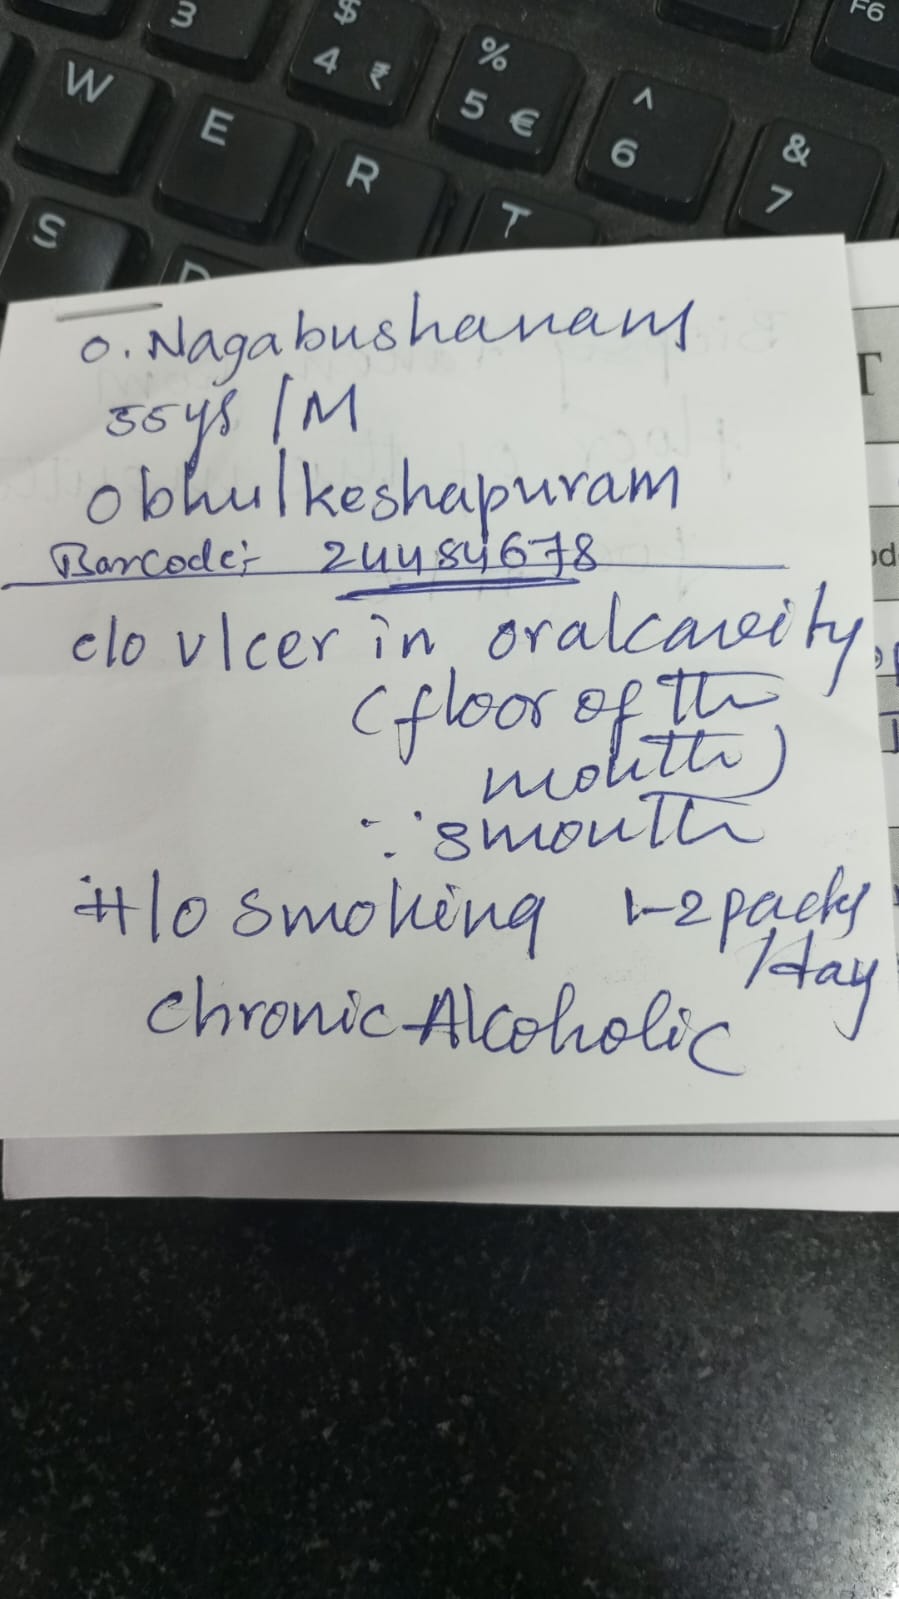 3
$
4 ₹
%
5 €
^
6
&
7
F6
W
E
R
T
S
D
T
O. Nagabushanam
55ys / M
Obhulkeshapuram
Barcode:- 24484678
c/o ulcer in oralcavity
(floor of the
mouth)
∵ 8 mouth
H/o smoking 1-2 packs
/day
chronic Alcoholic